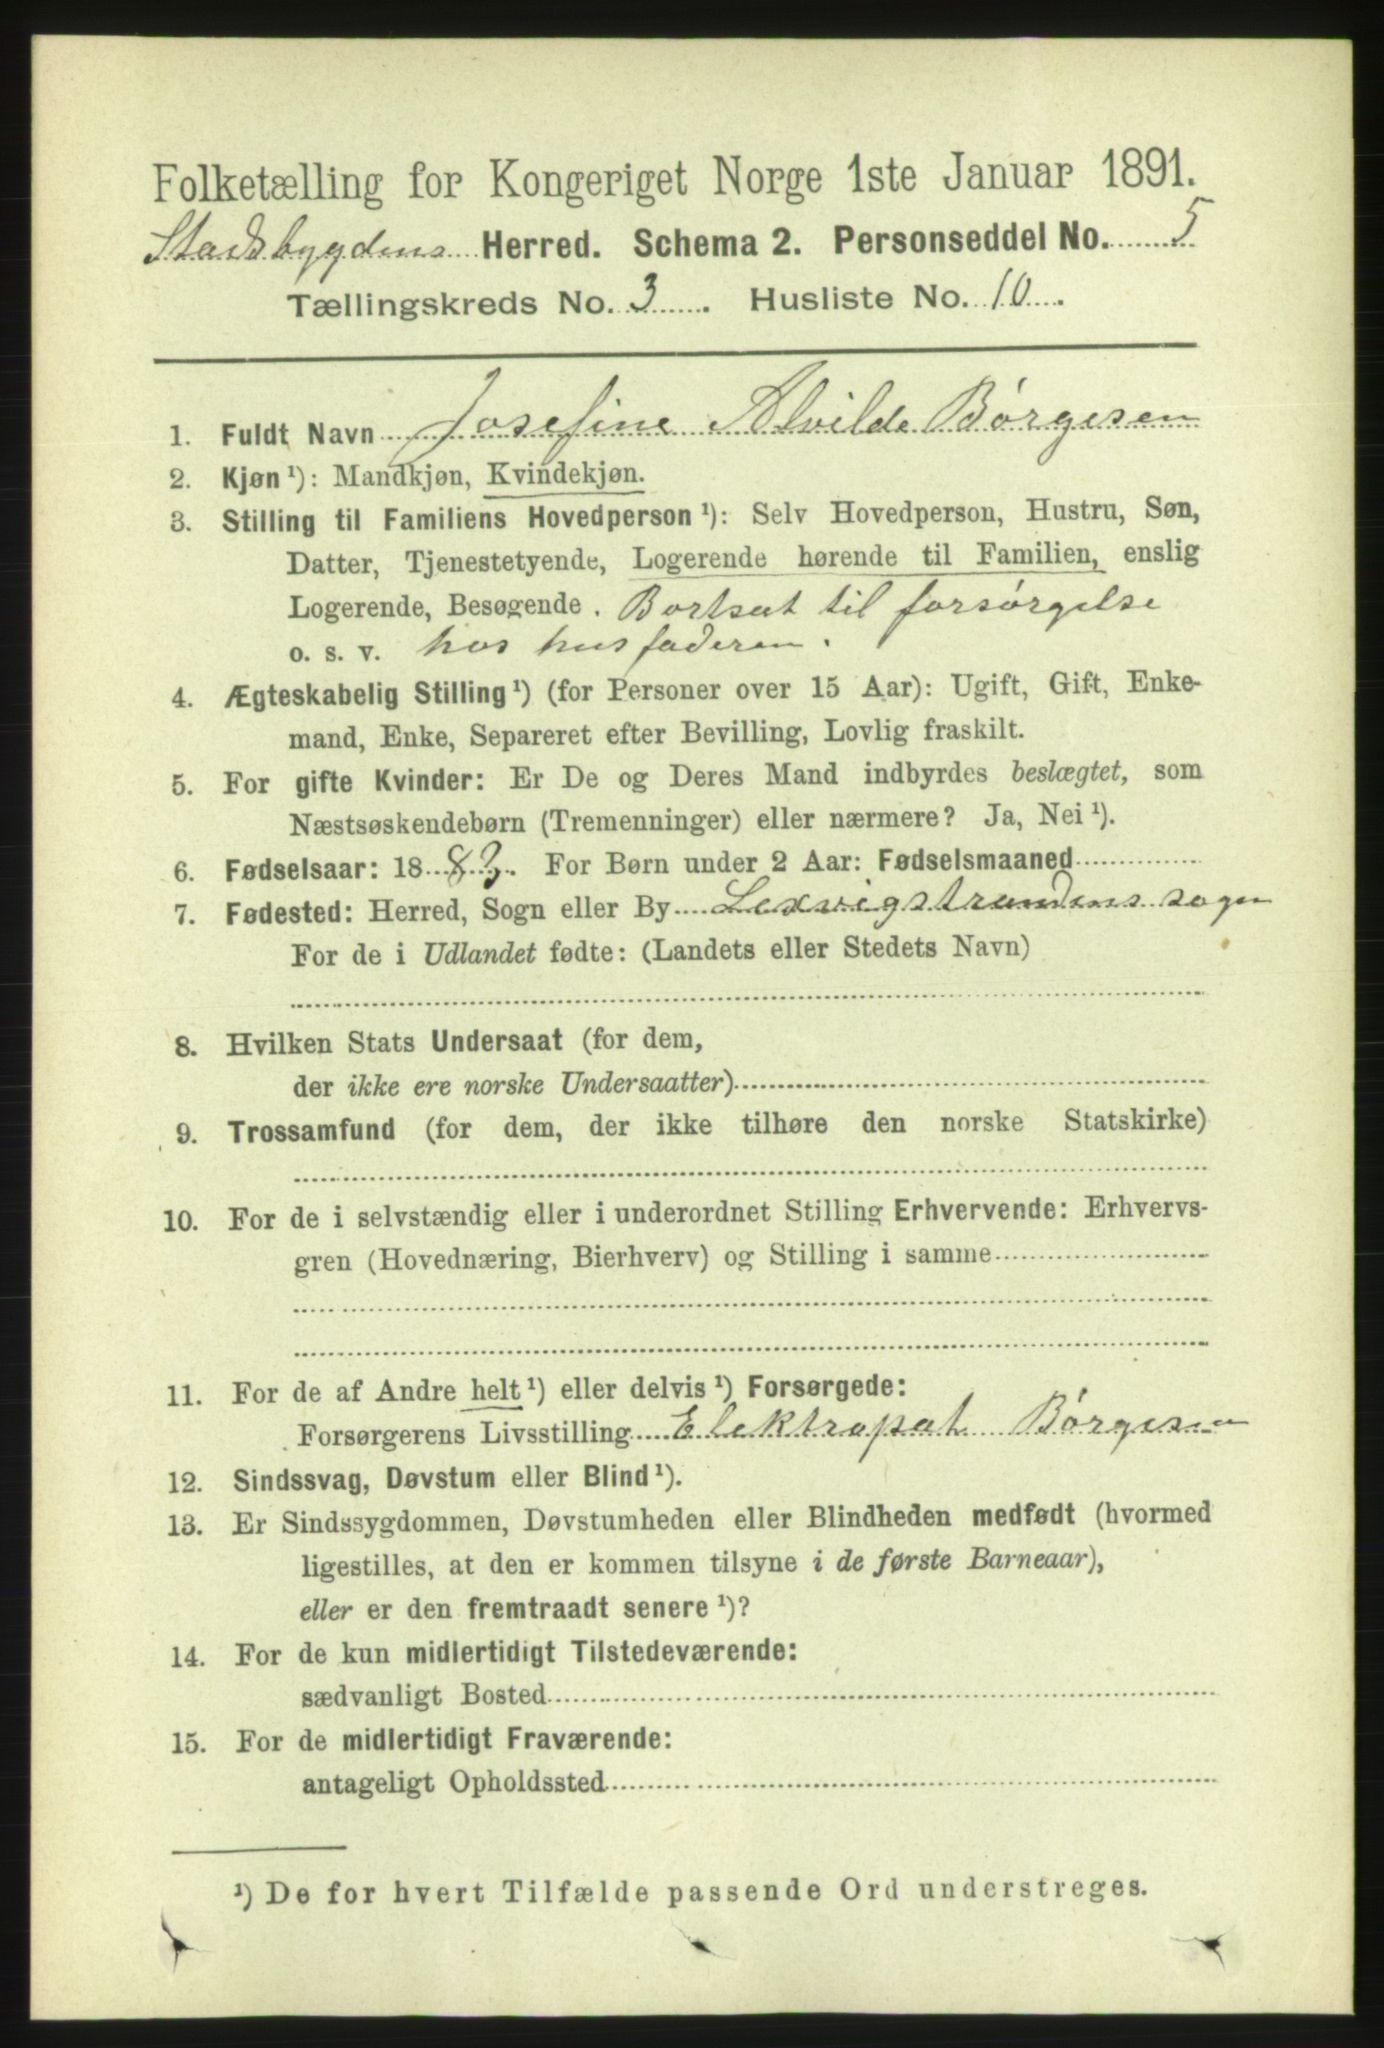 Folketælling for Kongeriget Norge 1ste Januar 1891.
Stadsbygdens Herred. Schema 2. Personseddel No. 5
Tællingskreds No. 3. Husliste No. 10.
1. Fuldt Navn Josefine Alvilde Børgesen
2. Kjøn¹): Mandkjøn, Kvindekjøn.
3. Stilling til Familiens Hovedperson¹): Selv Hovedperson, Hustru, Søn,
Datter, Tjenestetyende, Logerende hørende til Familien, enslig
Logerende, Besøgende. Bortsat til forsørgelse
o. s. v. hos husfaderen.
4. Ægteskabelig Stilling¹) (for Personer over 15 Aar): Ugift, Gift, Enke-
mand, Enke, Separeret efter Bevilling, Lovlig fraskilt.
5. For gifte Kvinder: Er De og Deres Mand indbyrdes beslægtet, som
Næstsøskendebørn (Tremenninger) eller nærmere? Ja, Nei¹).
6. Fødselsaar: 1883. For Børn under 2 Aar: Fødselsmaaned
7. Fødested: Herred, Sogn eller By Lexvigstrandens sogn
For de i Udlandet fødte: (Landets eller Stedets Navn)
8. Hvilken Stats Undersaat (for dem,
der ikke ere norske Undersaatter)
9. Trossamfund (for dem, der ikke tilhøre den norske Statskirke)
10. For de i selvstændig eller i underordnet Stilling Erhvervende: Erhvervs-
gren (Hovednæring, Bierhverv) og Stilling i samme
11. For de af Andre helt¹) eller delvis¹) Forsørgede:
Forsørgerens Livsstilling Elektropat Børgesen
12. Sindssvag, Døvstum eller Blind¹).
13. Er Sindssygdommen, Døvstumheden eller Blindheden medfødt (hvormed
ligestilles, at den er kommen tilsyne i de første Barneaar),
eller er den fremtraadt senere¹)?
14. For de kun midlertidigt Tilstedeværende:
sædvanligt Bosted
15. For de midlertidigt Fraværende:
antageligt Opholdssted
¹) De for hvert Tilfælde passende Ord understreges.